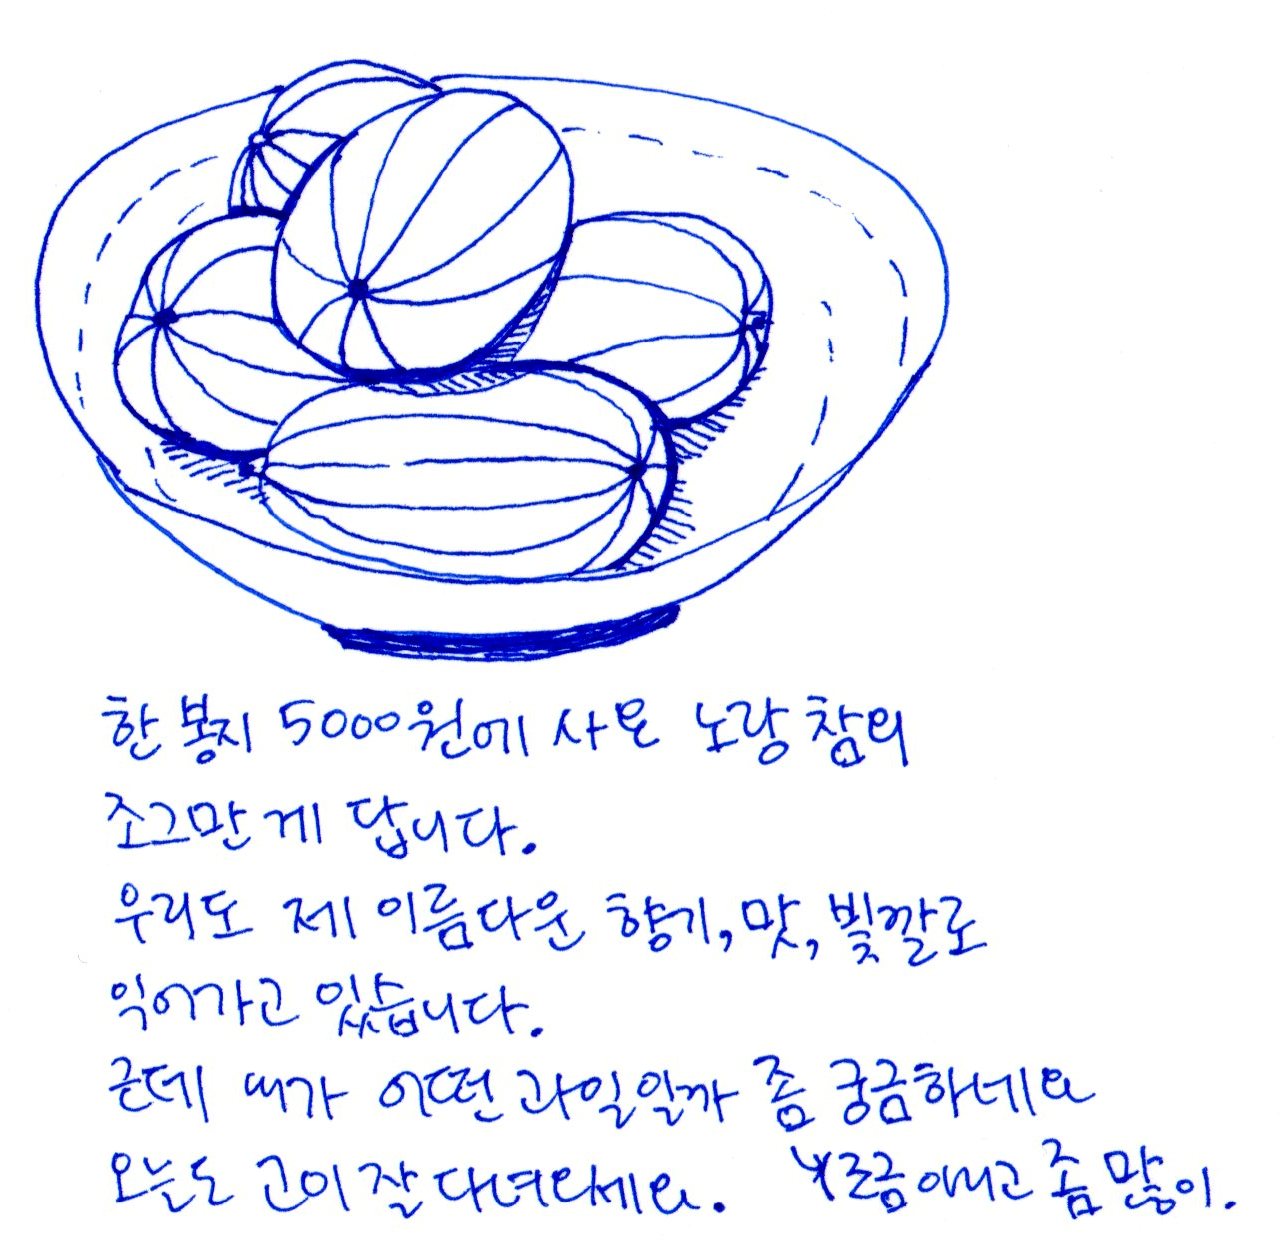 한 봉지 5000원에 사온 노랑 참외
조그만 게 답니다.
우리도 제 이름다운 향기, 맛, 빛깔로
익어가고 있습니다.
근데 내가 어떤 과일일까 좀 궁금하네요
오늘도 고이 잘 다녀와세요. 조금 아니고 좀 많이.